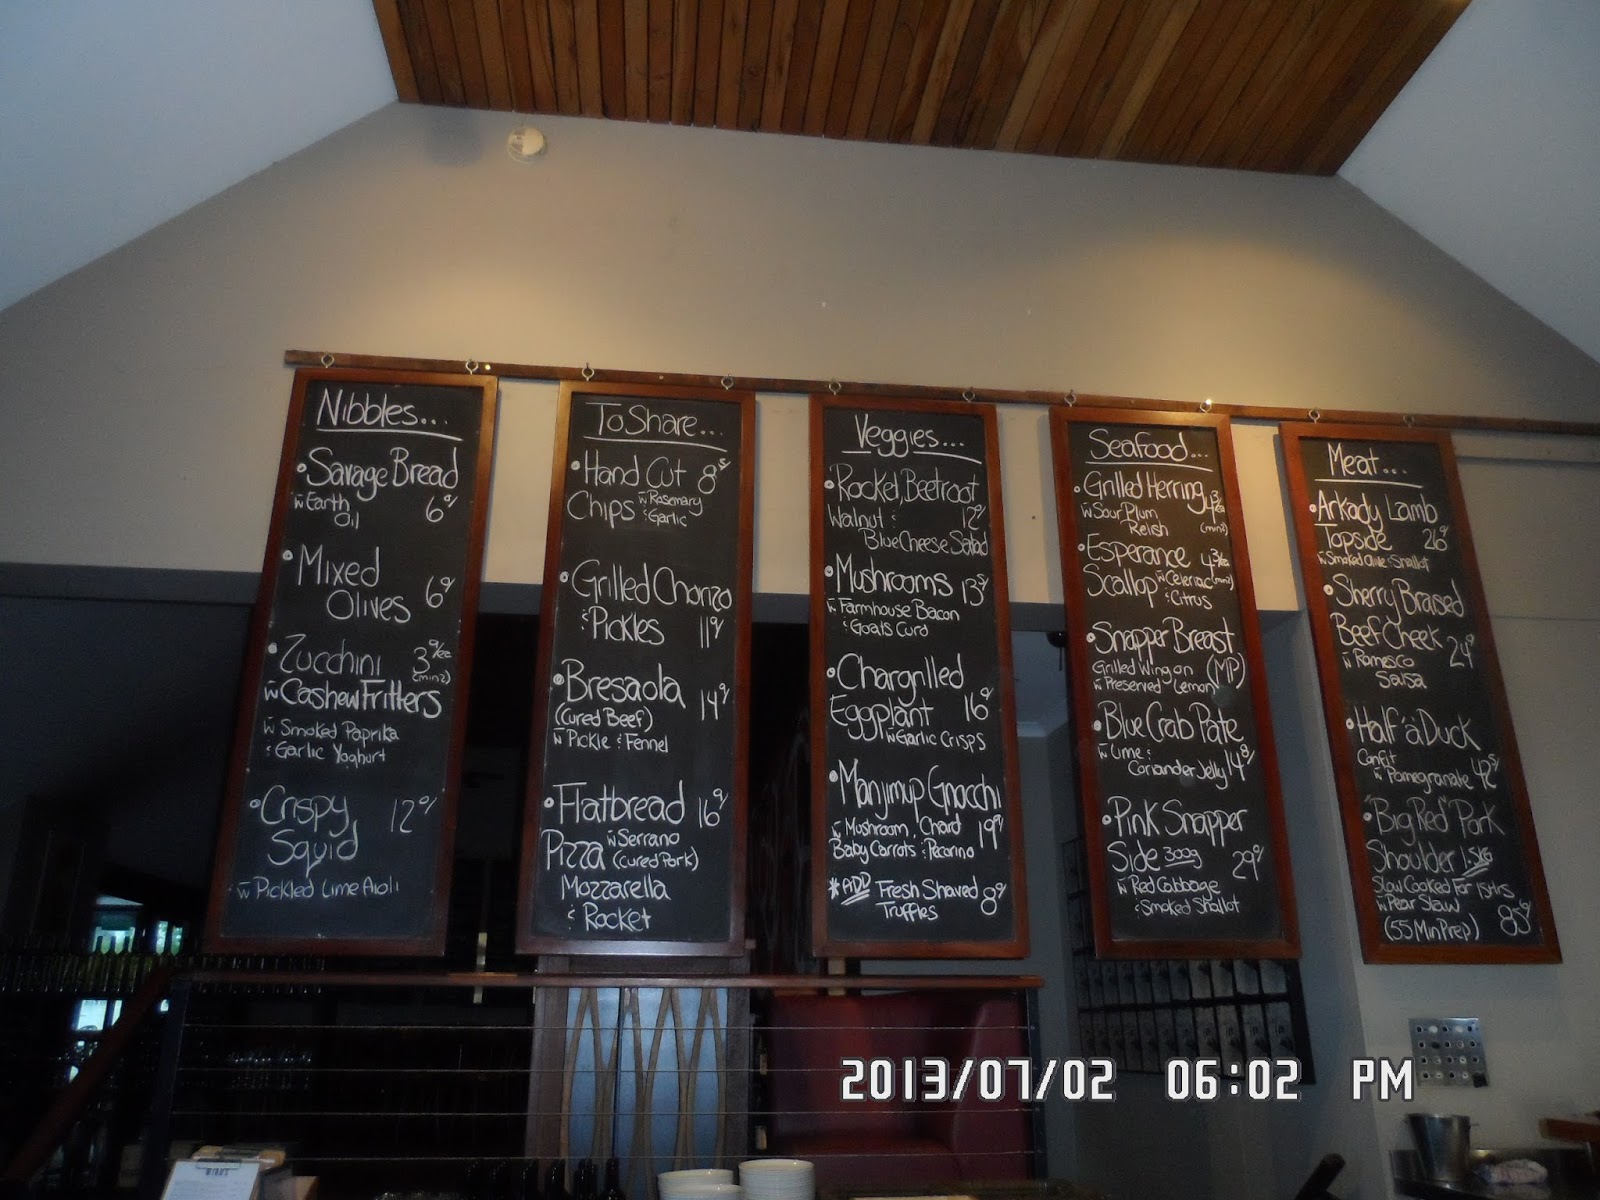 Nibbles...
• Savage Bread
w Earth 6
Oil
• Mixed
Olives 6
• Zucchini 3 /ea
(min 2)
w Cashew Fritters
w Smoked Paprika
& Garlic Yoghurt
• Crispy 12
Squid
w Pickled Lime Aioli
To Share...
• Hand Cut 8
Chips w Rosemary
& Garlic
• Grilled Chorizo
& Pickles 11
• Bresaola 14
(Cured Beef)
w Pickle & Fennel
• Flatbread 16
w Serrano
Pizza (Cured Pork)
Mozzarella
& Rocket
Veggies...
• Rocket, Beetroot
Walnut & 12
Blue Cheese Salad
• Mushrooms 13
w Farmhouse Bacon
& Goats Curd
• Chargrilled
Eggplant 16
w Garlic Crisps
• Manjimup Gnocchi
w Mushroom, Chard 19
Baby Carrots & Pecorino
* ADD Fresh Shaved 8
Truffles
Seafood...
• Grilled Herring
w Sour Plum
Relish (min 2)
• Esperance
Scallop w Celeriac (min 2)
& Citrus
• Snapper Breast
Grilled Wing on (MP)
w Preserved Lemon
• Blue Crab Pate
w Lime & 14
Coriander Jelly
• Pink Snapper
Side 300g 29
w Red Cabbage
& Smoked Shallot
Meat...
• Arkady Lamb
Topside 26
w Smoked Shallot
• Sherry Braised
Beef Cheek 24
w Romesco
Salsa
• Half 'a Duck
Confit 42
w Pomegranate
• "Big Red" Pork
Shoulder 1.5kg
Slow Cooked for 15 Hrs
w Pear Slaw 85
(55 Min Prep)
2013/07/02 06:02 PM